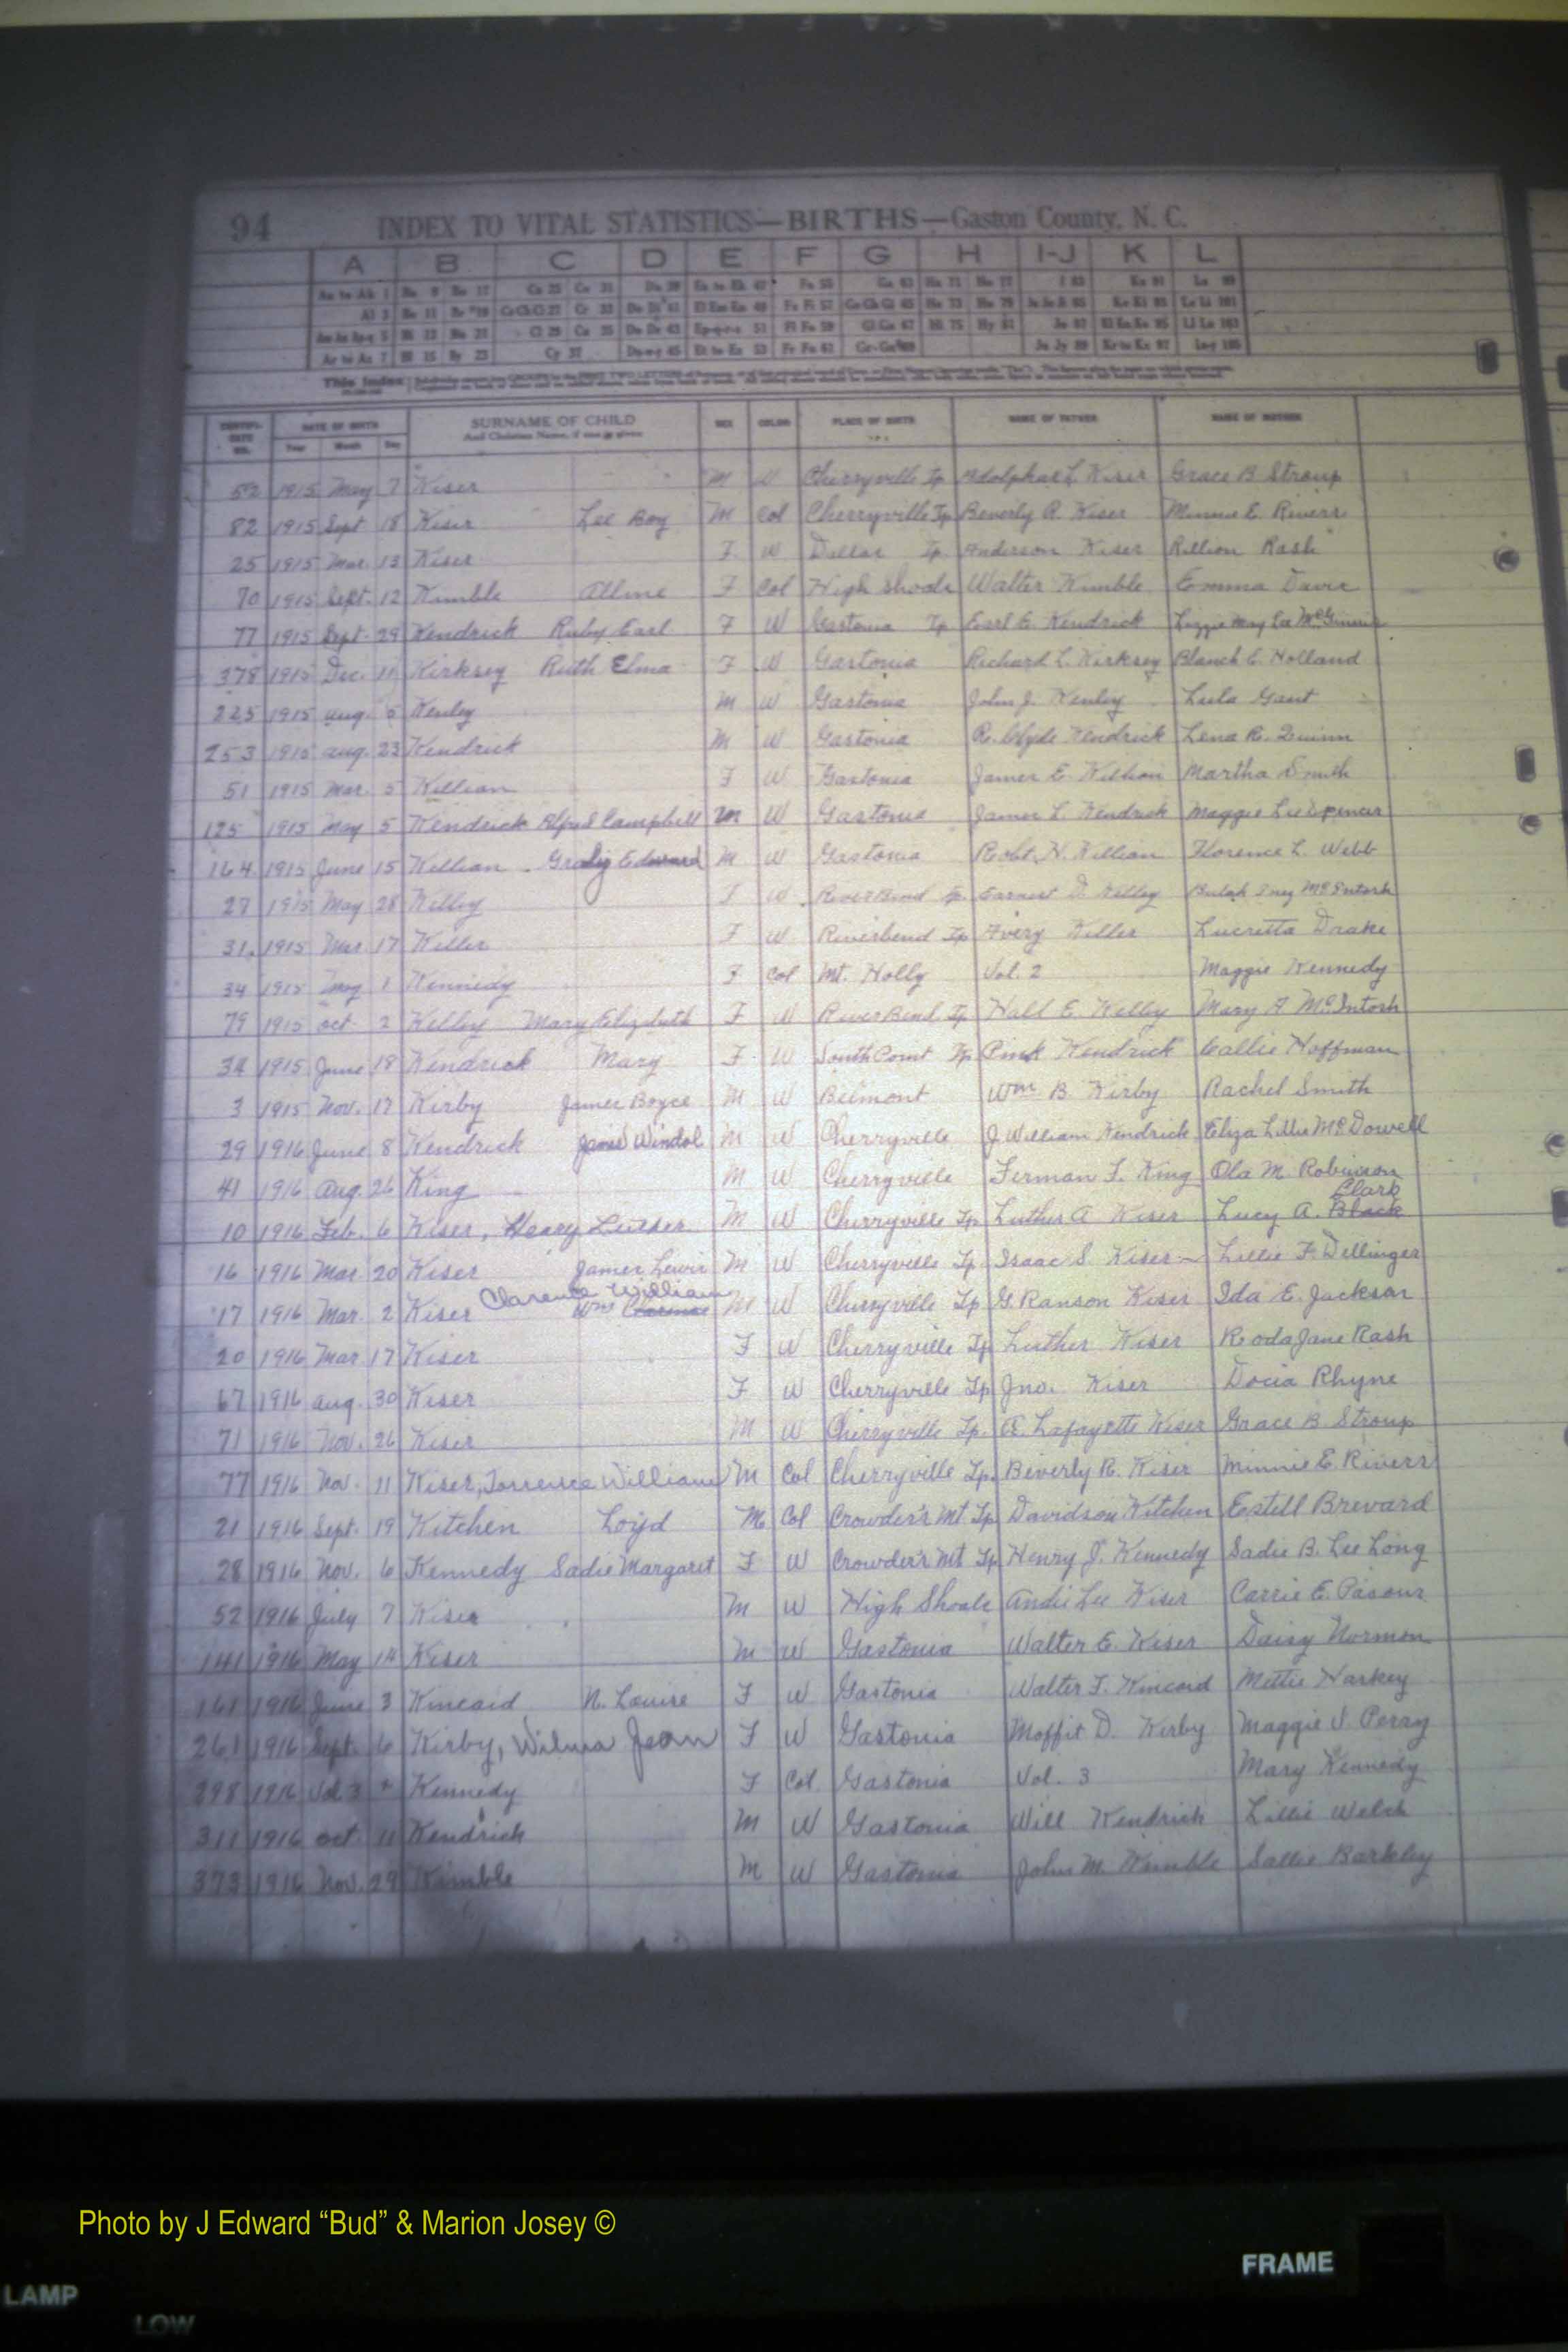 94 INDEX TO VITAL STATISTICS—BIRTHS—Gaston County, N. C.
A B C D E F G H I-J K L
This Index
SURNAME OF CHILD
DATE OF BIRTH And Christian Name, if one is given SEX COLOR PLACE OF BIRTH NAME OF FATHER NAME OF MOTHER
Year Month Day
52 1915 May 7 Kiser M W Cherryville Tp Adolphus L. Kiser Grace B Stroup
82 1915 Sept 18 Kiser Lee Boy M Col Cherryville Tp Beverly R. Kiser Minnie E. Rivers
25 1915 Mar. 13 Kiser F W Dallas Tp Anderson Kiser Rillion Rash
70 1915 Sept. 12 Kimble Alline F Col High Shoals Walter Kimble Emma Davis
77 1915 Sept. 29 Kendrick Ruby Earl F W Gastonia Tp Earl C. Kendrick Lizzie May
378 1915 Dec. 11 Kirksey Ruth Elma F W Gastonia Richard L. Kirksey Blanch C. Holland
225 1915 Aug. 5 Kenley M W Gastonia John J. Kenley Lula Gant
253 1915 Aug. 23 Kendrick M W Gastonia R. Clyde Kendrick Lena R. Quinn
51 1915 Mar. 5 Killian F W Gastonia James E. Killian Martha Smith
125 1915 May 5 Kendrick Alfred Campbell M W Gastonia James L. Kendrick Maggie Lee Spencer
164 1915 June 15 Killian Grady Edward M W Gastonia Robt. H. Killian Florence L. Webb
27 1915 May 28 Kelley F W River Bend Tp. Earnest D. Kelley Bulah Iney McIntosh
31. 1915 Mar 17 Keller F W Riverbend Tp Avery Keller Lucretta Drake
34 1915 May 1 Kennedy F Col Mt. Holly Vol. 2 Maggie Kennedy
79 1915 Oct. 2 Kelley Mary Elizabeth F W River Bend Tp Hall E. Kelley Mary A McIntosh
34 1915 June 18 Kendrick Mary F W South Point Tp Pink Kendrick Callie Hoffman
3 1915 Nov. 17 Kirby James Boyce M W Belmont Wm B Kirby Rachel Smith
29 1916 June 8 Kendrick Windol M W Cherryville J William Kendrick Eliza Lillie McDowell
41 1916 Aug. 26 King M W Cherryville Ferman F. King Ola M. Robinson
Clark
10 1916 Feb. 6 Kiser, Henry Luther M W Cherryville Tp Luther A Kiser Lucy A. Black
16 1916 Mar 20 Kiser James Lewis M W Cherryville Tp Isaac S. Kiser Lillie F. Dellinger
Clarence William
17 1916 Mar. 2 Kiser Wm Clarence M W Cherryville Tp G. Ranson Kiser Ida E. Jackson
20 1916 Mar 17 Kiser F W Cherryville Tp Luther Kiser Roda Jane Rash
67 1916 Aug. 30 Kiser F W Cherryville Tp Jno. Kiser Docia Rhyne
71 1916 Nov. 26 Kiser M W Cherryville Tp. A. Lafayette Kiser Grace B Stroup
77 1916 Nov. 11 Kiser, Torrence William M Col Cherryville Tp. Beverly R. Kiser Minnie E. Rivers
21 1916 Sept. 19 Kitchen Loyd M Col Crowder's Mt Tp Davidson Kitchen Estell Brevard
28 1916 Nov. 6 Kennedy Sadie Margaret F W Crowder's Mt Tp Henry J. Kennedy Sadie B. Lee Long
52 1916 July 7 Kiser M W High Shoals Andie Lee Kiser Carrie E. Pasour
141 1916 May 14 Kiser M W Gastonia Walter E. Kiser Daisy Norman
161 1916 June 3 Kincaid N. Louise F W Gastonia Walter F. Kincaid Mettie Harkey
261 1916 Sept. 6 Kirby, Wilma Jean F W Gastonia Moffit D. Kirby Maggie J. Peray
298 1916 Vol 3 Kennedy F Col Gastonia Vol. 3 Mary Kennedy
311 1916 Oct. 11 Kendrick M W Gastonia Will Kendrick Lillie Welch
373 1916 Nov. 29 Kimble M W Gastonia John M. Kimble Sallie Barkley
Photo by J Edward “Bud” & Marion Josey ©
FRAME
LAMP
LOW